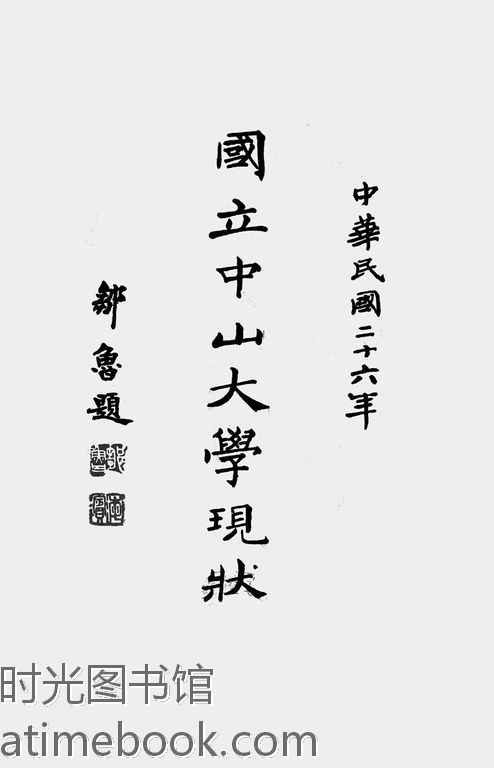 中華民國二十六年
國立中山大學現狀
鄒魯題
鄒魯
时光图书馆
atimebook.com